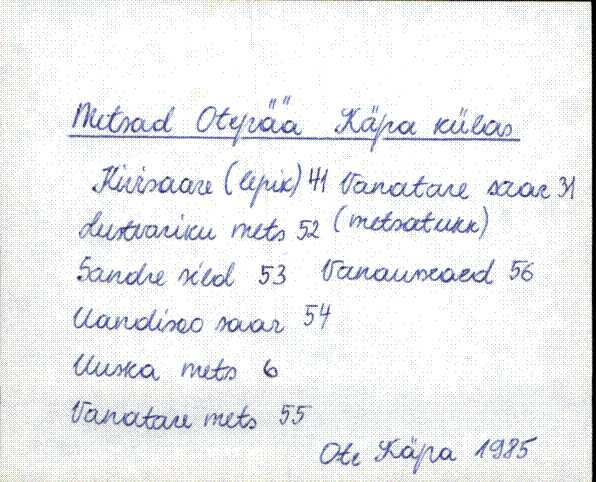 Metsad Otepää Käpa külas
Kivisaare (lepik) 41 Vanatare saar 31
Lustvariku mets 52 (metsatukk)
Sandre sild 53 56
saar 54
Uuska mets 6
Vanatare mets 55
Ote Käpa 1985